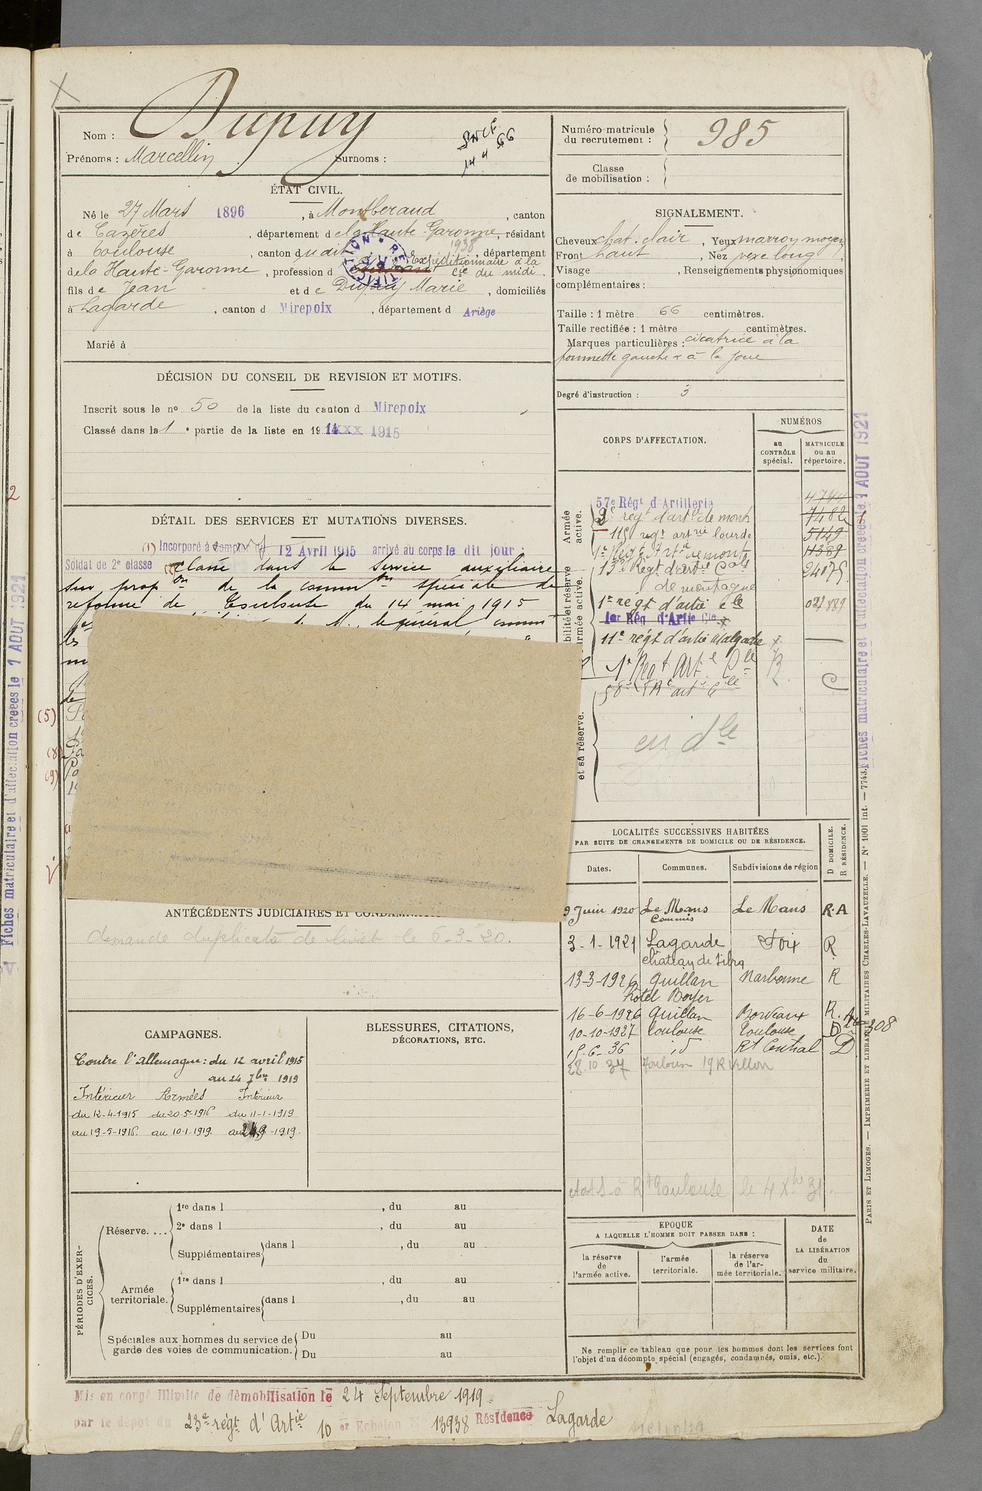 Nom : Dupuy
Prénoms : Marcellin Surnoms :
Numéro matricule du recrutement : 985
Classe de mobilisation :
ÉTAT CIVIL.
Né le 27 Mars 1896, à Montberaud, canton
de Cazères, département de la Haute-Garonne, résidant
à Toulouse, canton dudit, département
1938
de la Haute-Garonne, profession d Expéditionnaire à la Cie du midi.
fils de Jean et de Dupuy Marie, domiciliés
à Lagarde, canton d Mirepoix, département d Ariège
Marié à
RECTIFICATION
SIGNALEMENT.
Cheveux chat. clair, Yeux marron moyen
Front haut, Nez
Visage, Renseignements physionomiques
complémentaires :
Taille : 1 mètre 66 centimètres.
Taille rectifiée : 1 mètre centimètres.
Marques particulières : cicatrice à la
pommette gauche à la joue
Degré d'instruction : 3
DÉCISION DU CONSEIL DE REVISION ET MOTIFS.
Inscrit sous le no 50 de la liste du canton d Mirepoix
Classé dans la 1e partie de la liste en 1915
CORPS D'AFFECTATION.
NUMÉROS
au CONTRÔLE spécial.
MATRICULE ou au répertoire.
Armée active.
57e Régt d'Artillerie 4744
2e régt d'artie de montne 7482
115 régt artrie lourde 5149
1er Régt Art. de montne 11389
13e Régt d'artie Cole 24075
de montagne
1er régt d'artie Cle 027889
1er Rég d'Artie Cle
11e régt d'artie Malgache
1er Régt Arte Cle
et sa réserve.
en dle
DÉTAIL DES SERVICES ET MUTATIONS DIVERSES.
(1) Incorporé à compter du 12 Avril 1915 arrivé au corps le dit jour :
Soldat de 2e classe Classé dans le service auxiliaire
sur propon de la common spéciale de
réforme de Toulouse du 14 mai 1915
(5)
(8)
(9)
ANTÉCÉDENTS JUDICIAIRES ET CONDAMN
demande duplicata de livret le 6-3-20.
LOCALITÉS SUCCESSIVES HABITÉES
PAR SUITE DE CHANGEMENTS DE DOMICILE OU DE RÉSIDENCE.
Dates. Communes. Subdivisions de région D DOMICILE. R RÉSIDENCE.
9 Juin 1920 Le Mans Le Mans R.A
Commis
3-1-1921 Lagarde Foix R
château de
13-3-1926 Quillan Narbonne R
hôtel Boyer
16-6-1926 Quillan Bordeaux R.
10-10-1927 Toulouse Toulouse D
15-6-36 id Rt Central D
28.10.37 Toulouse 19 R Villon
CAMPAGNES.
Contre l'allemagne : du 12 avril 1915
au 24 7bre 1919
Intérieur Armées Intérieur
du 12-4-1915 du 20-5-1916 du 11-1-1919
au 19-5-1916. au 10-1-1919. au 24-9-1919.
BLESSURES, CITATIONS,
DÉCORATIONS, ETC.
PÉRIODES D'EXERCICES.
Réserve....
1re dans l , du au
2e dans l , du au
Supplémentaires dans l , du au
Armée territoriale.
1re dans l , du au
Supplémentaires dans l , du au
Spéciales aux hommes du service de garde des voies de communication.
Du au
Du au
EPOQUE
A LAQUELLE L'HOMME DOIT PASSER DANS :
la réserve de l'armée active.
l'armée territoriale.
la réserve de l'armée territoriale.
DATE de LA LIBÉRATION du service militaire.
Ne remplir ce tableau que pour les hommes dont les services font
l'objet d'un décompte spécial (engagés, condamnés, omis, etc.).
Mis en congé illimité de démobilisation le 24 Septembre 1919.
par le dépôt du 23e régt d'Artie 10 er Echelon No 13938 Résidence Lagarde
Fiches matriculaire et d'affectation créées le 1 AOUT 1921
PARIS ET LIMOGES. — IMPRIMERIE ET LIBRAIRIE MILITAIRES CHARLES-LAVAUZELLE. — No 1001 int. — 7743.
Fiches matriculaire et d'affectation créées le 1 AOUT 1921